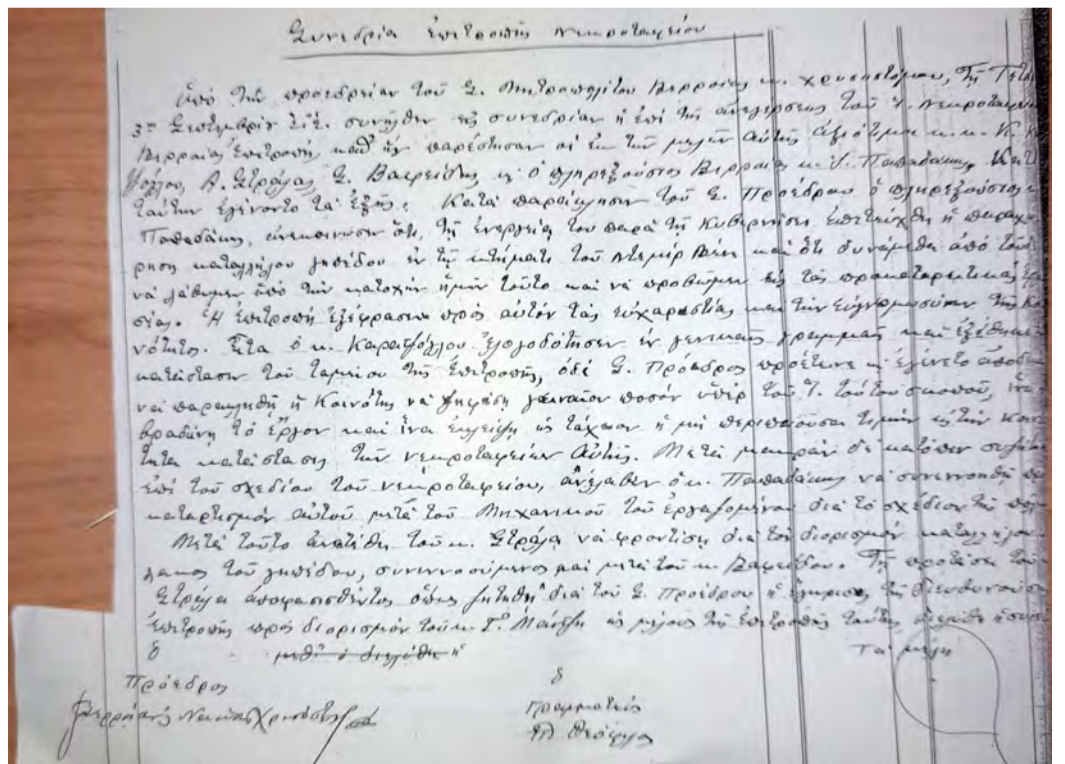 Συνεδρία ἐπιτροπῆς νεκροταφείου
Ὑπὸ τὴν προεδρείαν τοῦ Σ. Μητροπολίτου Βερροίας κ. Χρυσοστόμου, τῇ
3ῃ Σεπτεμβρίου ἐ.ἔ. συνῆλθεν εἰς συνεδρίαν ἡ ἐπὶ τῆς ἀνεγέρσεως τοῦ
Βερροίας ἐπιτροπή, καθ' ἣν παρέστησαν οἱ ἐκ τῶν μελῶν αὐτῆς ἀξιότιμοι κ.κ.
Α. Στράλας, Σ. Βαφείδης κ ὁ πληρεξούσιος Βερροίας κ. Παπαδάκης. Κατὰ
ταύτην ἐγένοντο τὰ ἑξῆς: Κατὰ παράκλησιν τοῦ Σ. Προέδρου ὁ πληρεξούσιος
Παπαδάκης, ἀνεκοίνωσεν ὅτι, τῇ ἐνεργείᾳ του παρὰ τῇ Κυβερνήσει ἐπετεύχθη ἡ παραχώ-
ρησις καταλλήλου γηπέδου ἐν τῷ κτήματι τοῦ καὶ ὅτι δυνάμεθα ἀπὸ τοῦδε
νὰ λάβωμεν ὑπὸ τὴν κατοχὴν ἡμῶν τοῦτο καὶ νὰ προβῶμεν εἰς τὰς προκαταρκτικὰς
σίας. Ἡ ἐπιτροπὴ ἐξέφρασεν πρὸς αὐτὸν τὰς εὐχαριστίας καὶ τὴν εὐγνωμοσύνην τῆς Κοι
νότητος. Εἶτα ὁ κ. Καρατζόγλου ἐλογοδότησεν ἐν γενικαῖς γραμμαῖς καὶ ἐξέθηκε
κατάστασιν τοῦ ταμείου τῆς ἐπιτροπῆς, ὁ δὲ Σ. Πρόεδρος προέτεινε κ ἐγένετο ἀποδεκ
νὰ παρακληθῇ ἡ Κοινότης νὰ ψηφίσῃ γενναῖον ποσὸν ὑπὲρ τοῦ τούτου σκοποῦ, ἵνα
βραδύνῃ τὸ ἔργον καὶ ἵνα ἐκλείψῃ ὡς τάχιον ἡ μὴ περιποιοῦσα τιμὴν εἰς τὴν Κοινό
τητα κατάστασις τῶν νεκροταφείων αὐτῆς. Μετὰ μακρὰν δὲ κατόπιν συζήτ
ἐπὶ τοῦ σχεδίου τοῦ νεκροταφείου, ἀνέλαβεν ὁ κ. Παπαδάκης νὰ συνεννοηθῇ
καταρτισμὸν αὐτοῦ μετὰ τοῦ Μηχανικοῦ τοῦ ἐργαζομένου διὰ τὸ σχέδιον τῆς
Μετὰ τοῦτο ἀνετέθη τοῦ κ. Στράλα νὰ φροντίσῃ διὰ τὸν διορισμὸν καταλλήλου
λακος τοῦ γηπέδου, συνεννοούμενος καὶ μετὰ τοῦ κ. Βαφείδου. Τῇ προτάσει τοῦ
Στράλα ἀποφασισθέντος ὅπως ζητηθῇ διὰ τοῦ Σ. Προέδρου ἡ ἔγκρισις τῆς διευθυνούσης
ἐπιτροπῆς πρὸς διορισμὸν τοῦ κ. Γ. ὡς μέλους τῆς ἐπιτροπῆς ταύτης διελύθη ἡ συνε
ὁ μεθ' ὃ διελύθη ἡ Τὰ μέλη
Πρόεδρος ὁ
Γραμματεὺς